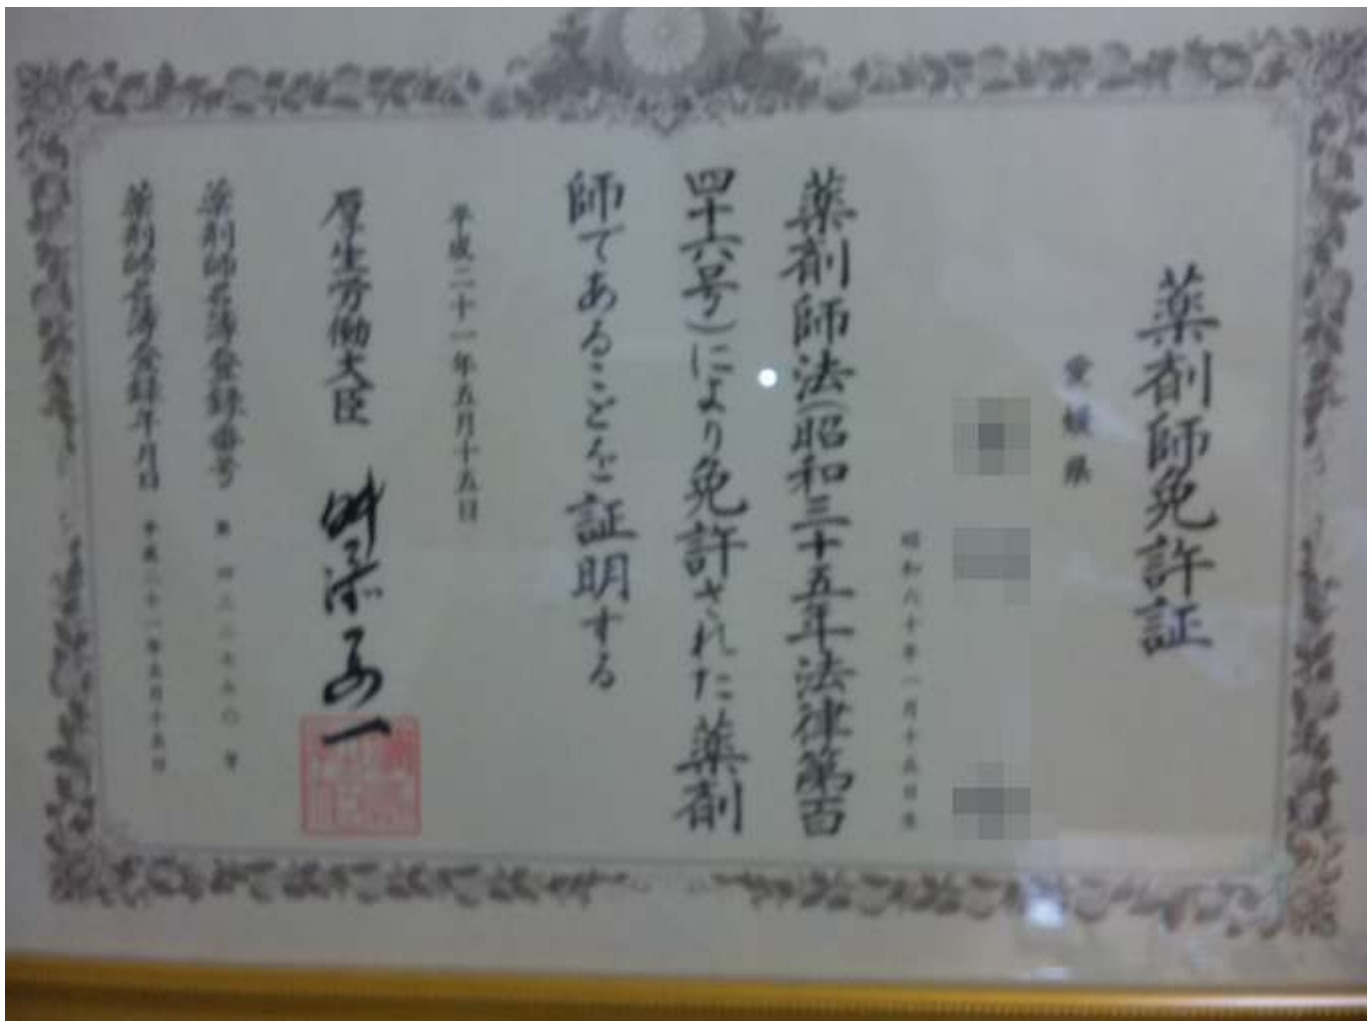 薬剤師免許証
愛媛県
昭和六十年一月十五日生
薬剤師法(昭和三十五年法律第百
四十六号)により免許された薬剤
師であることを証明する
平成二十一年五月十五日
厚生労働大臣 舛添要一
薬剤師名簿登録番号 第
薬剤師名簿登録年月日 平成二十一年五月十五日